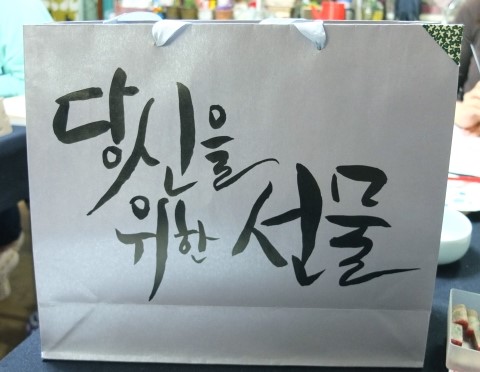 당신을
위한 선물